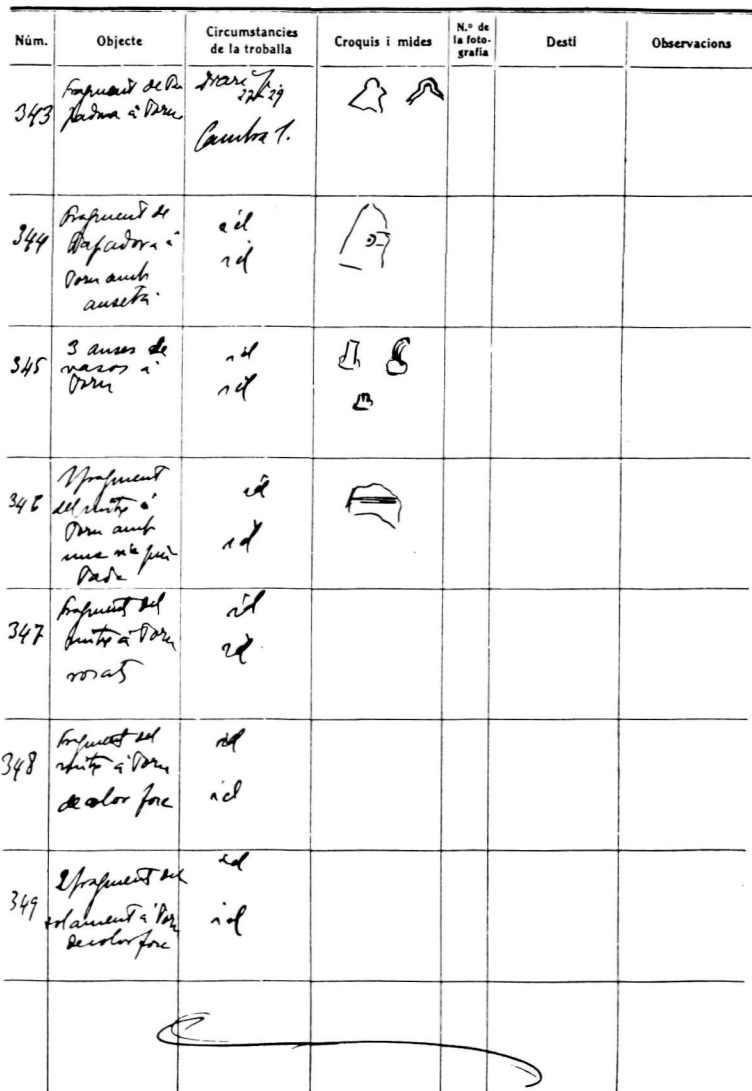 Núm. Objecte Circumstancies de la troballa Croquis i mides N.º de la foto-grafia Destí Observacions
343 Fragment de
à torn
Diari
27-29
Cambra 1.
344 Fragment de
tapadora à
torn amb
anseta.
id
id
345 3 anses de
vasos à
torn
id
id
346 1 fragment
del mitx à
torn amb
una
id
id
347 fragment del
mitx à torn
rosat
id
id
348 fragment del
mitx à torn
de color fosc
id
id
349 2 fragment del
à torn
de color fosc
id
id